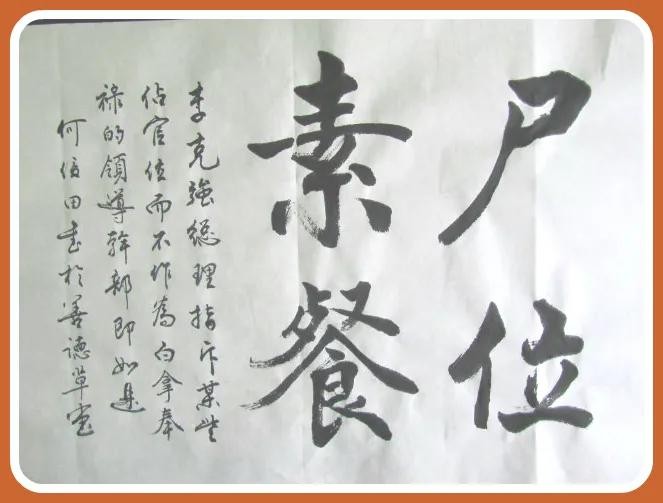 尸位
素餐
李克強總理指斥某些
佔官位而不作為白拿奉
祿的領導幹部即如是
何信田書於善德草堂